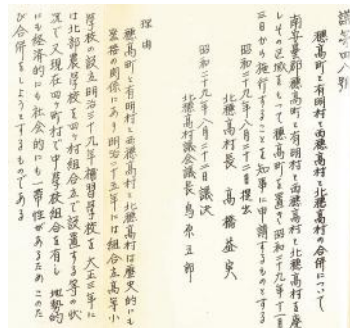 議第四八号
穂高町と有明村と西穂高村と北穂高村の合併について
南安曇郡穂高町と有明村と西穂高村と北穂高村を廃
しその区域をもって穂高町を置き昭和二十九年十一月
三日から施行することを知事に申請するものとする
昭和二十九年八月二十二日提出
北穂高村長 高橋基実
昭和二十九年八月二十二日議決
北穂高村議会議長 鳥原五郎
理由
穂高町と有明村と西穂高村と北穂高村は歴史的にも
密接の関係にあり明治二十五年には組合立高等小
学校の設立明治三十九年補習学校を大正三年に
は北部農学校を四ヶ村組合立で設置する等の状
況で又現在四ヶ町村で中学校組合を有し地勢的
にも経済的にも社会的にも一帯性があるためこのた
び合併をしようとするものである